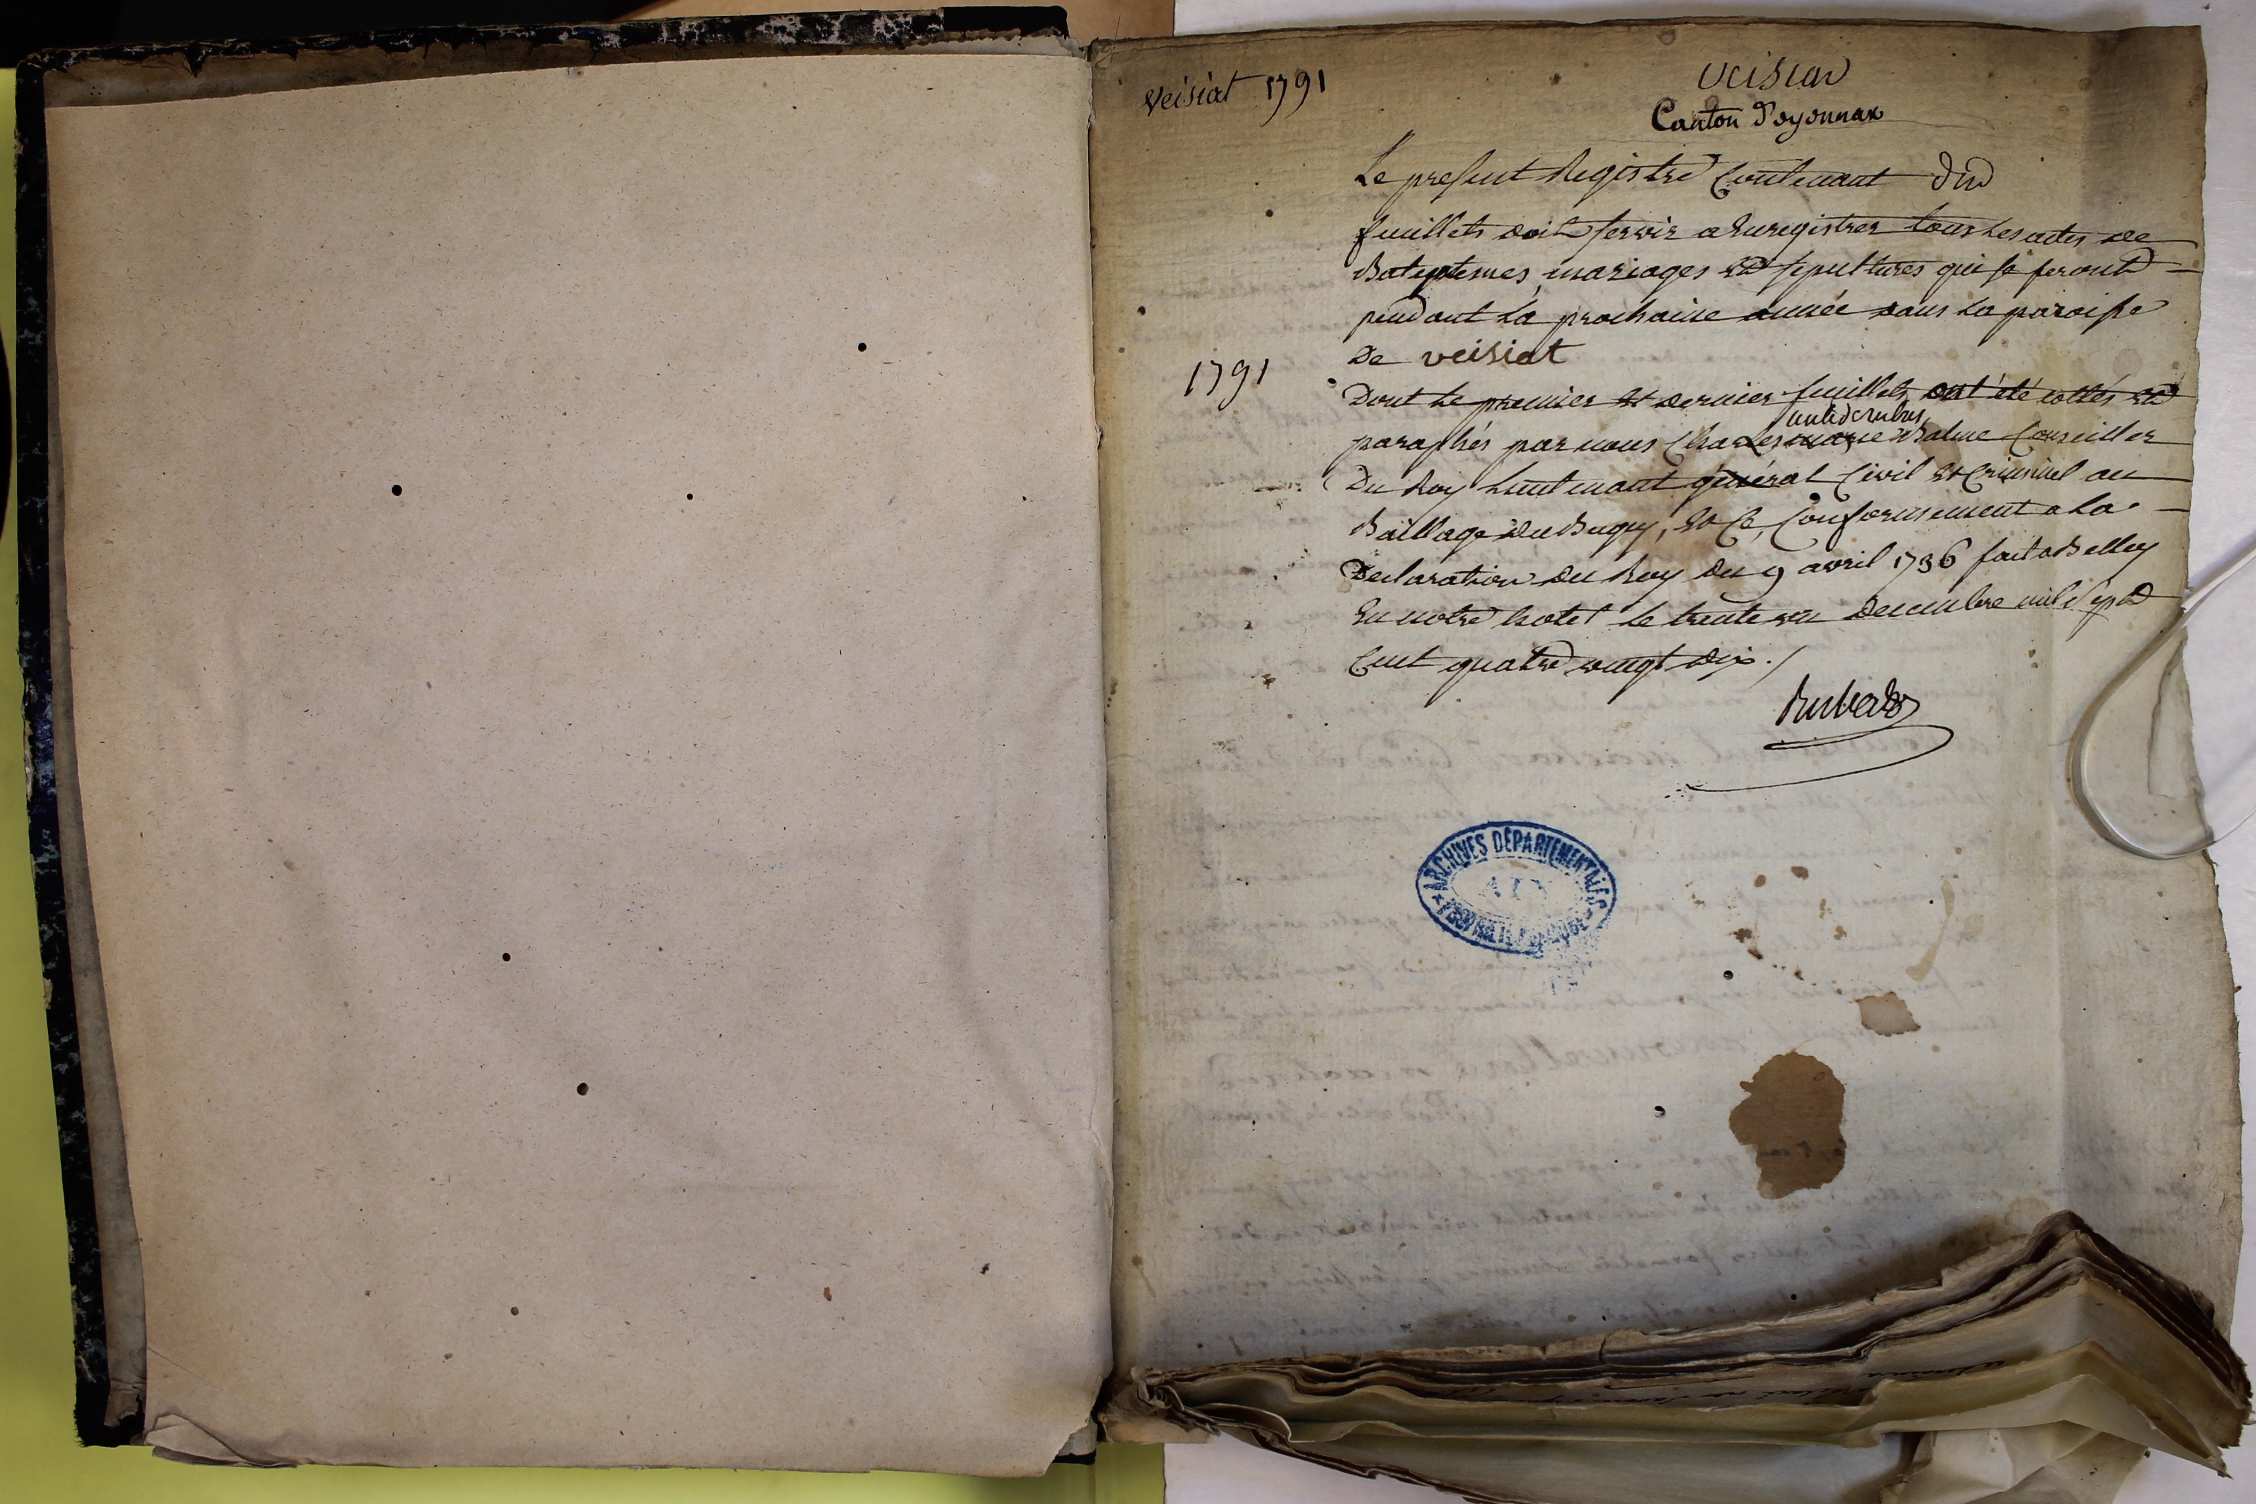 Veisiat 1791
Veisiat
Canton d'oyonnax
Le present Registre Contenant dix
feuillets doit servir a Enregistrer tous Les actes de
Bateptemes, mariages Et sepultures qui se feront
pendant La prochaine année dans La paroisse
De veisiat
1791
Dont Le premier Et dernier feuillets ont été cottés Et
paraphés par nous Charles Balme Conseiller
Du Roy Lieutenant général Civil Et Criminel au
Baillage du Bugey, Et Ce, Conformement a La
Declaration du Roy du 9 avril 1736 fait a Belley
En notre hotel le trente un decembre mil sept
Cent quatre vingt dix ./
ARCHIVES DÉPARTEMENTALES
AIN